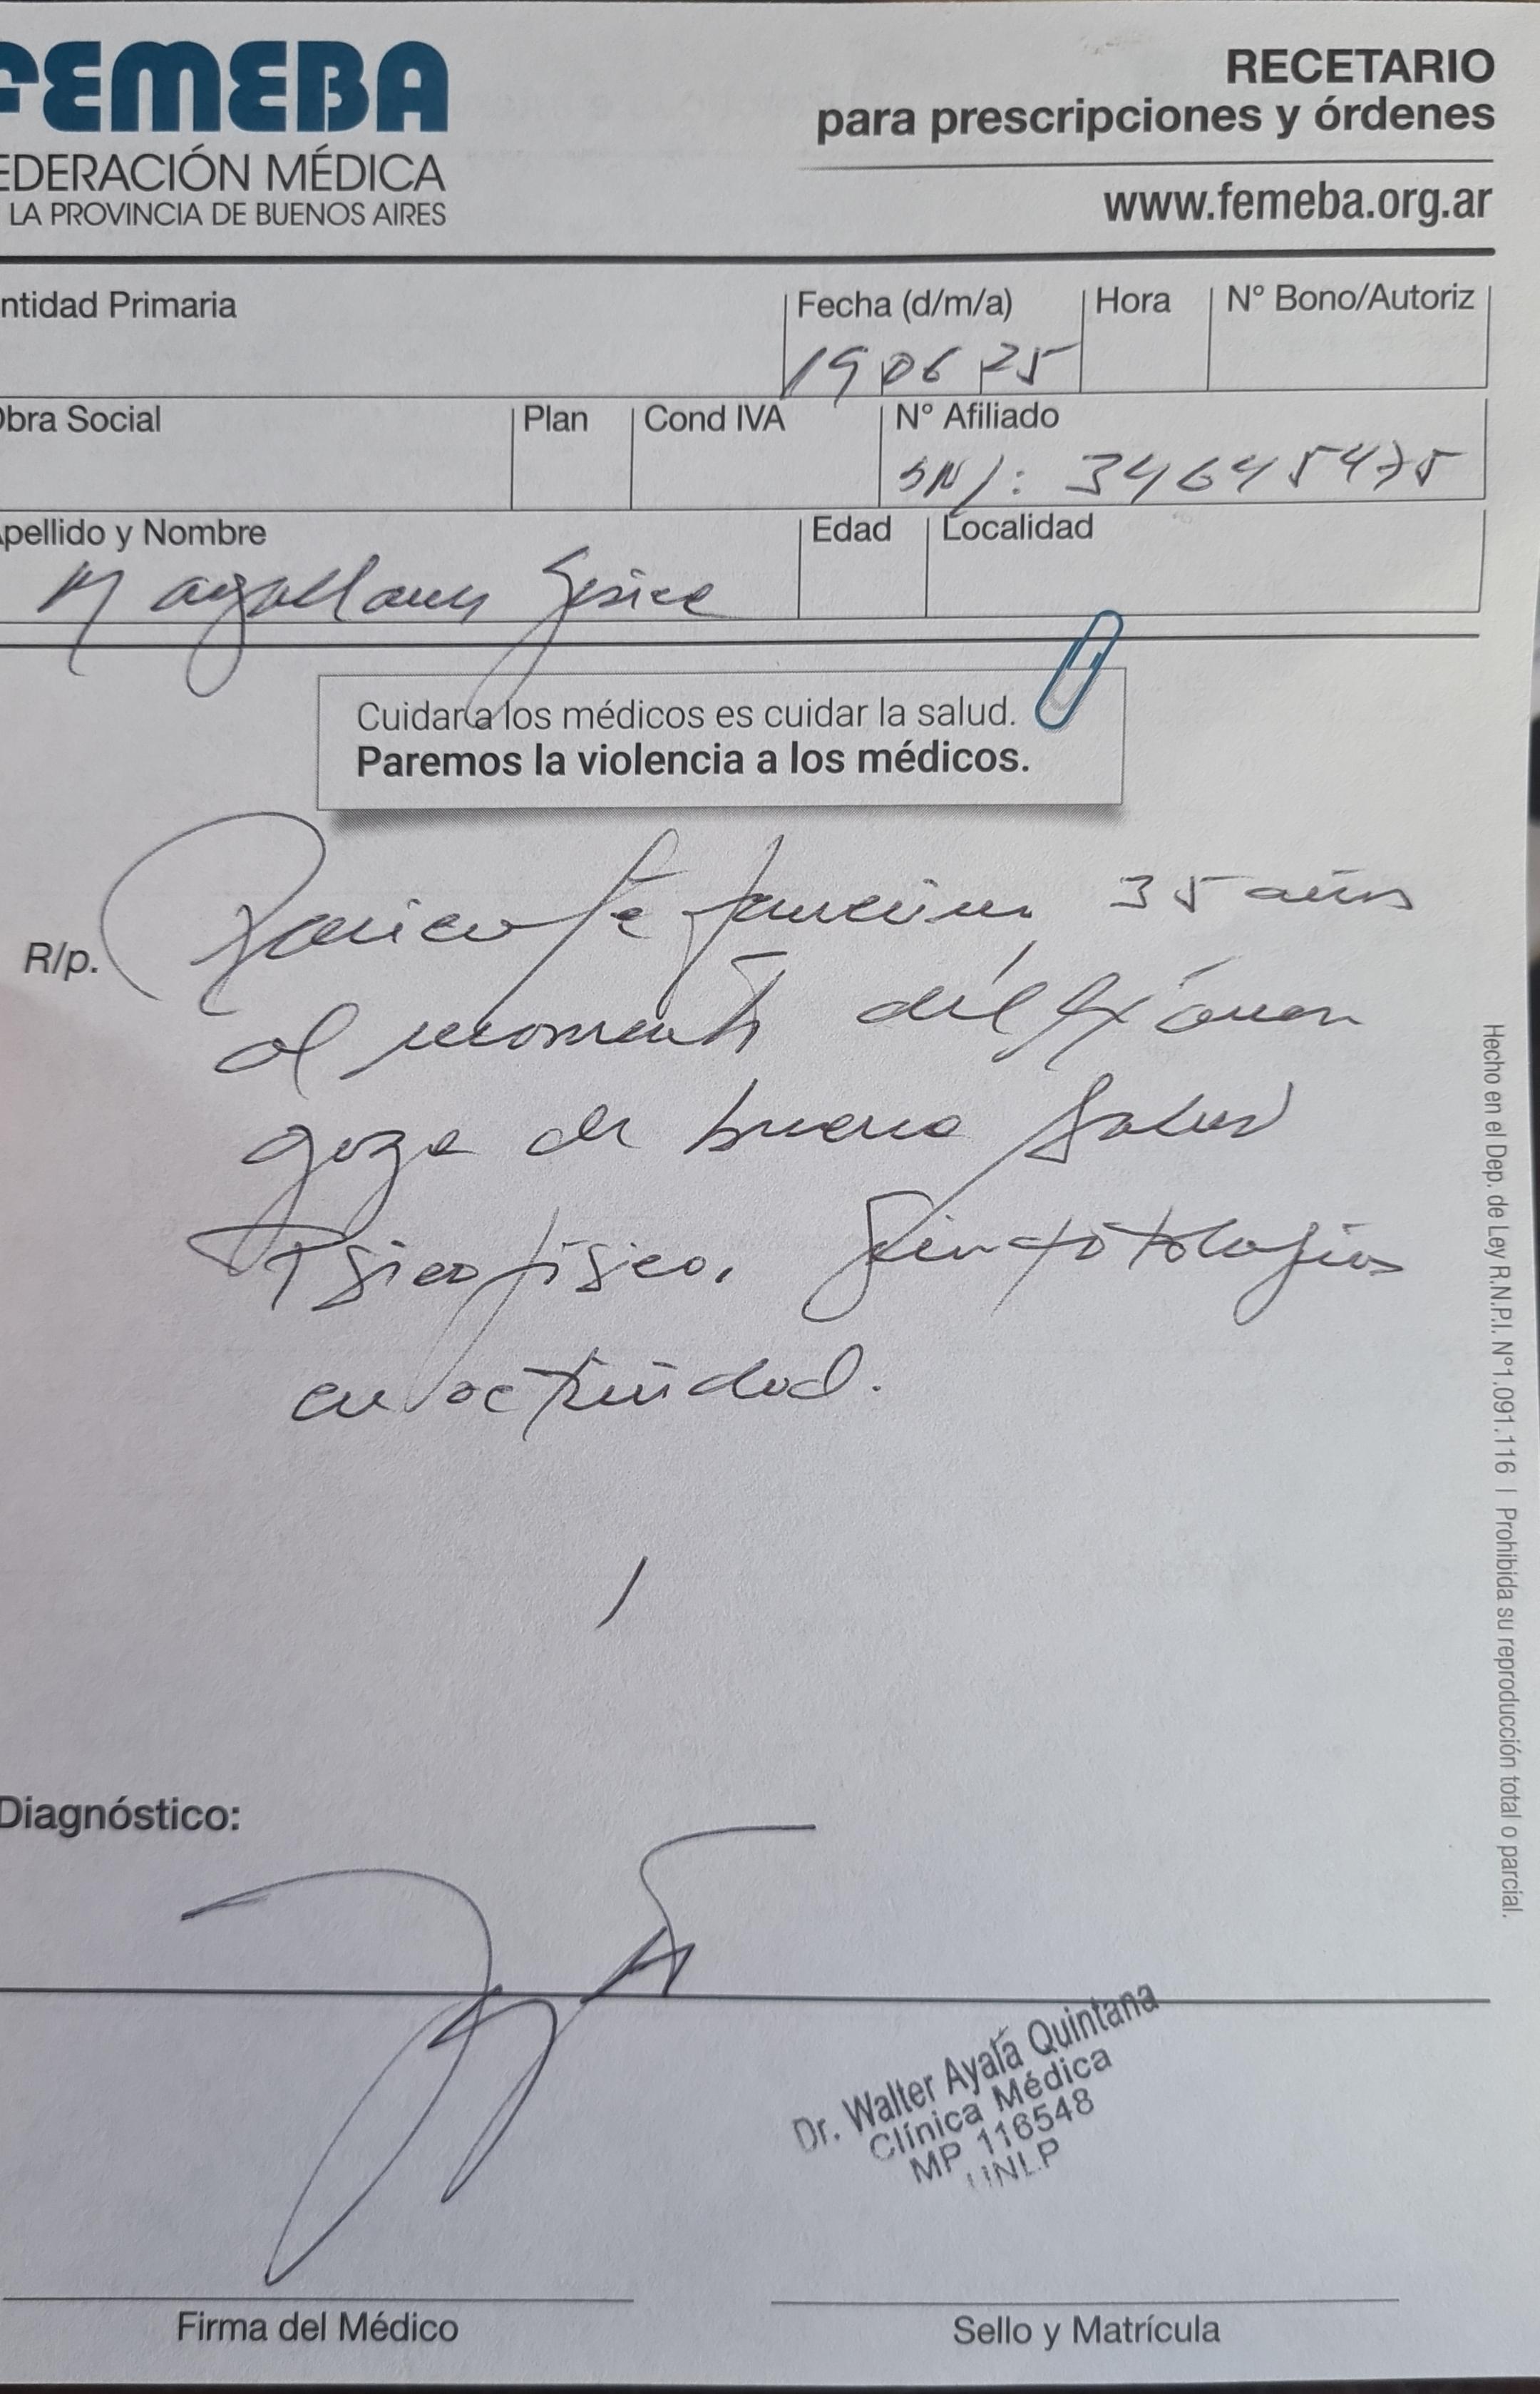 FEMEBA
EDERACIÓN MÉDICA
LA PROVINCIA DE BUENOS AIRES
RECETARIO
para prescripciones y órdenes
www.femeba.org.ar
ntidad Primaria
Fecha (d/m/a)
19 06 25
Hora
N° Bono/Autoriz
Obra Social
Plan
Cond IVA
N° Afiliado
DNI: 34645475
Apellido y Nombre
Magallanes
Edad
Localidad
Cuidar a los médicos es cuidar la salud.
Paremos la violencia a los médicos.
R/p.
Paciente femenina 35 años
al momento del exámen
goza de buena salud
Psicofísica. Sin patologías
en actividad.
Diagnóstico:
Dr. Walter Ayala Quintana
Clínica Médica
MP 116548
UNLP
Firma del Médico
Sello y Matrícula
Hecho en el Dep. de Ley R.N.P.I. N°1.091.116 | Prohibida su reproducción total o parcial.